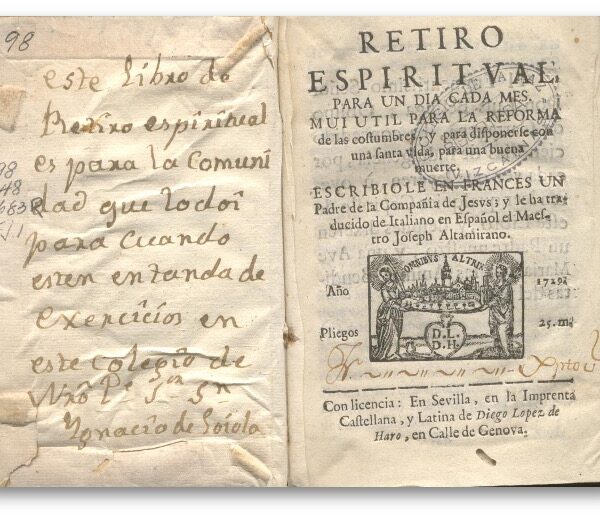 98
este libro de
Retiro espiritual
es para la Comuni
dad que lo doi
para cuando
esten en tanda de
exercicios en
este colegio de
Nro Pe Sn Sn
Ygnacio de Loiola
98
48
683
RETIRO
ESPIRITVAL.
PARA UN DIA CADA MES.
MUI UTIL PARA LA REFORMA
de las costumbres, y para disponerse con
una santa vida, para una buena
muerte.
ESCRIBIÒLE EN FRANCES UN
Padre de la Compañia de Jesvs; y le ha tra-
ducido de Italiano en Español el Maes-
tro Joseph Altamirano.
OMNIBVS
Año 1729.
Pliegos 25. m.
D. L.
D. H.
Con licencia: En Sevilla, en la Imprenta
Castellana, y Latina de Diego Lopez de
Haro, en Calle de Genova.